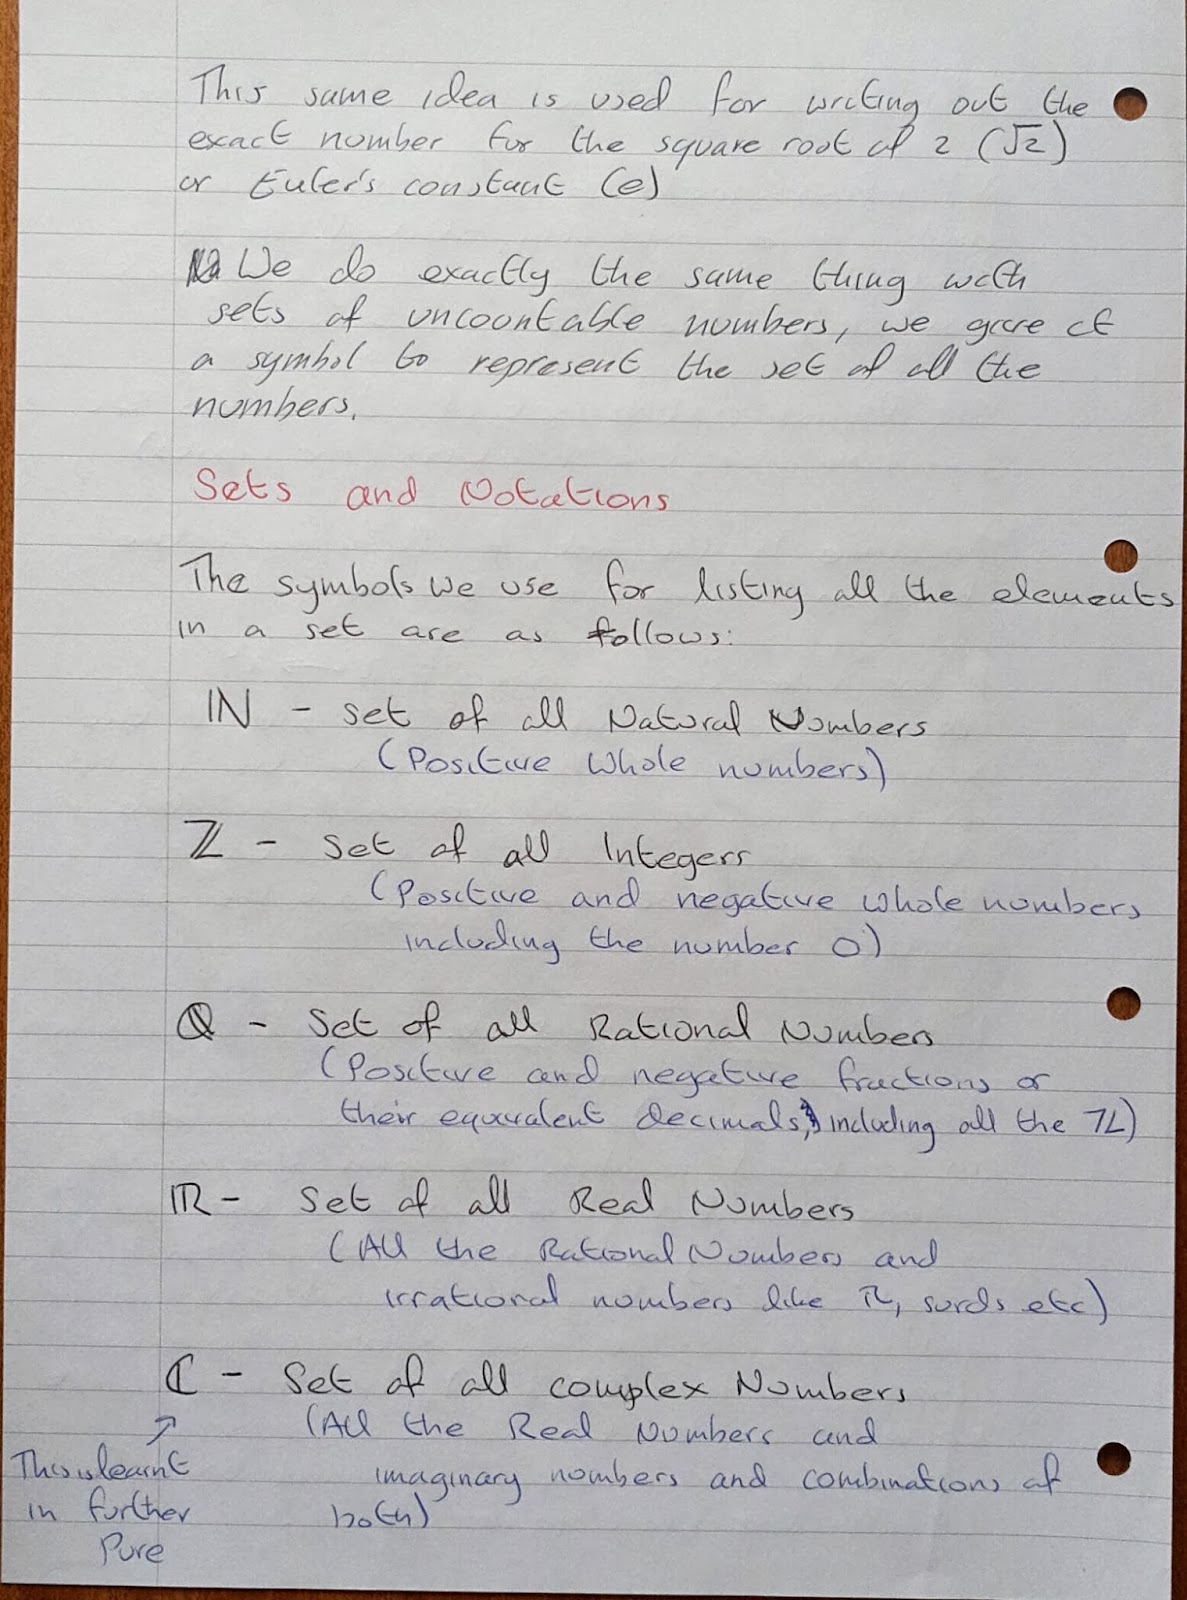 This same idea is used for writing out the
exact number for the square root of 2 (√2)
or Euler's constant (e)
We do exactly the same thing with
sets of uncountable numbers, we give it
a symbol to represent the set of all the
numbers.
Sets and Notations
The symbols we use for listing all the elements
in a set are as follows:
ℕ - set of all Natural Numbers
(Positive Whole numbers)
ℤ - Set of all Integers
(Positive and negative whole numbers
including the number 0)
ℚ - Set of all Rational Numbers
(Positive and negative fractions or
their equivalent decimals, including all the ℤ)
ℝ - Set of all Real Numbers
(All the Rational Numbers and
irrational numbers like π, surds etc)
ℂ - Set of all complex Numbers
(All the Real Numbers and
imaginary numbers and combinations of
both)
This is learnt
in further
Pure